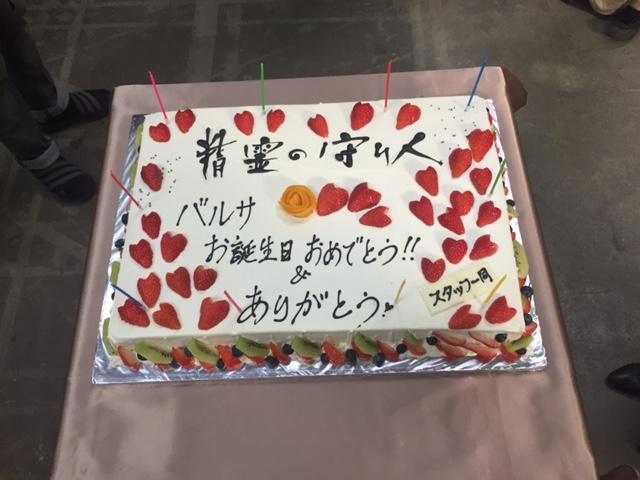 精霊の守り人
バルサ
お誕生日 おめでとう!!
&
ありがとう
スタッフ一同